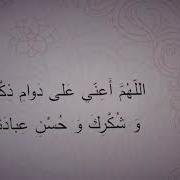 اللّهُمَّ أَعِنّي على دَوامِ
وَ شُكْرِكَ وَ حُسْنِ